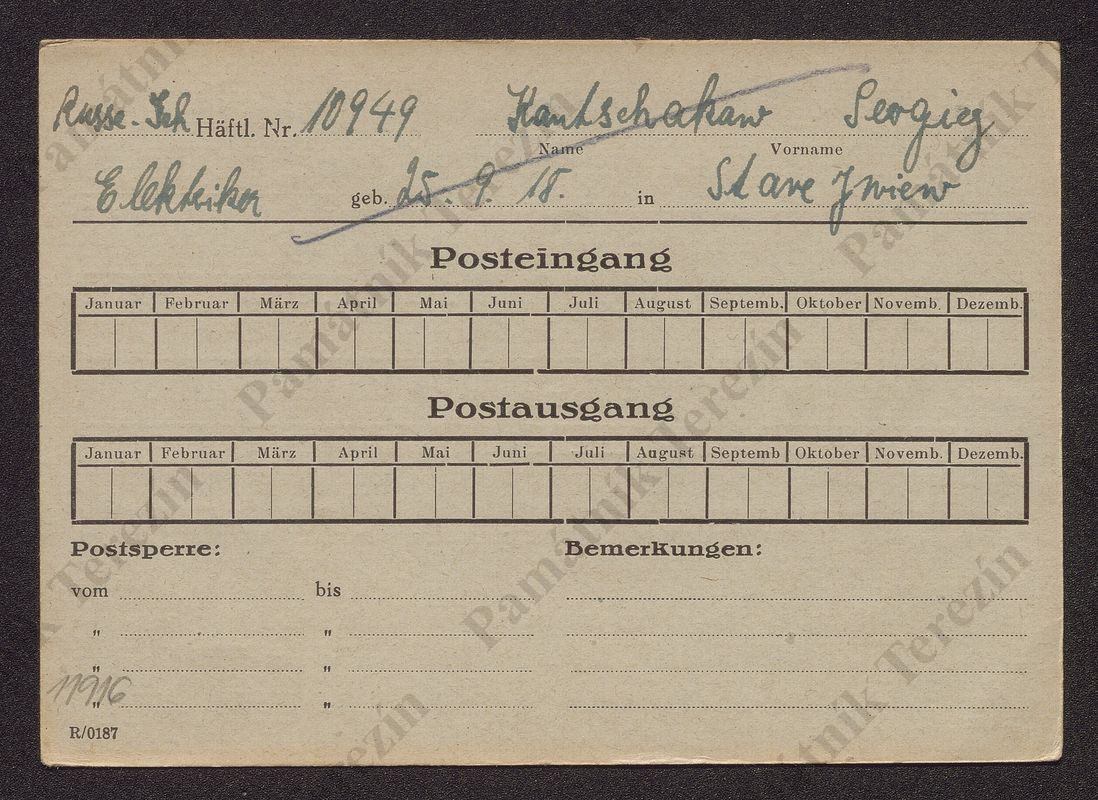 Russe-Sch Häftl. Nr. 10949 Kantschakaw Sergieg
Name Vorname
Elektriker geb. 25. 9. 18. in Stare Jwiew
Posteingang
Januar Februar März April Mai Juni Juli August Septemb. Oktober Novemb. Dezemb.
Postausgang
Januar Februar März April Mai Juni Juli August Septemb Oktober Novemb. Dezemb.
Postsperre: Bemerkungen:
vom bis
" "
" "
11916 " "
R/0187
Památník Terezín